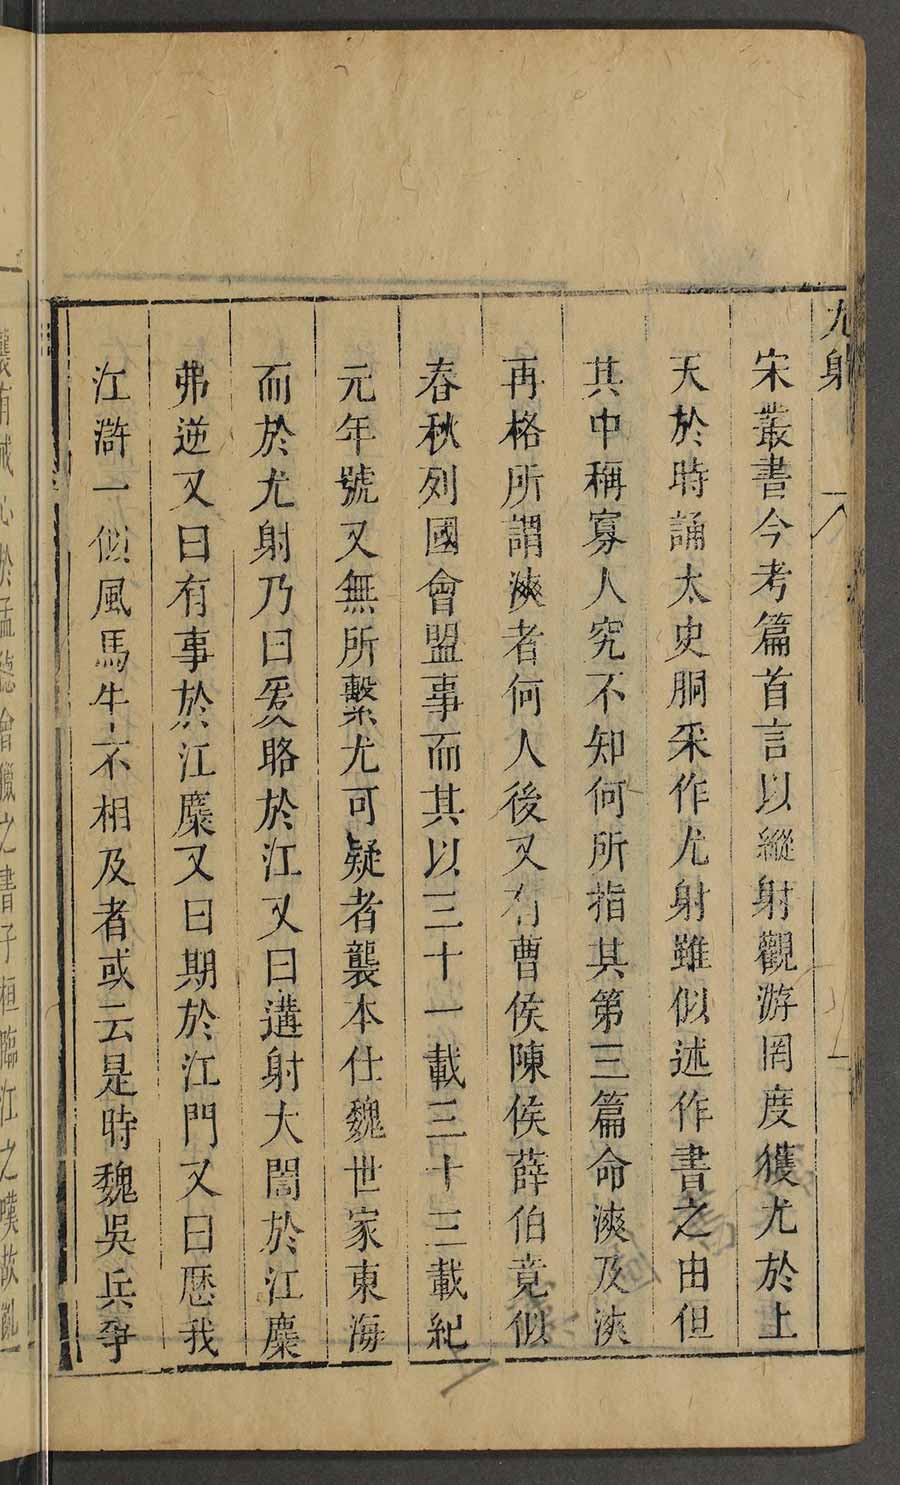 尤射
宋叢書今考篇首言以縱射觀游罔度獲尤於上
天於時誦太史胴采作尤射雖似述作書之由但
其中稱寡人究不知何所指其第三篇命浹及浹
再格所謂浹者何人後又有曹侯陳侯薛伯竟似
春秋列國會盟事而其以三十一載三十三載紀
元年號又無所繫尤可疑者襲本仕魏世家東海
而於尤射乃曰爰略於江又曰遘射大閤於江麋
弗逆又曰有事於江麋又曰期於江門又曰歷我
江滸一似風馬牛不相及者或云是時魏吳兵爭
襲有戒心於孟德會獵之書子桓臨江之嘆故